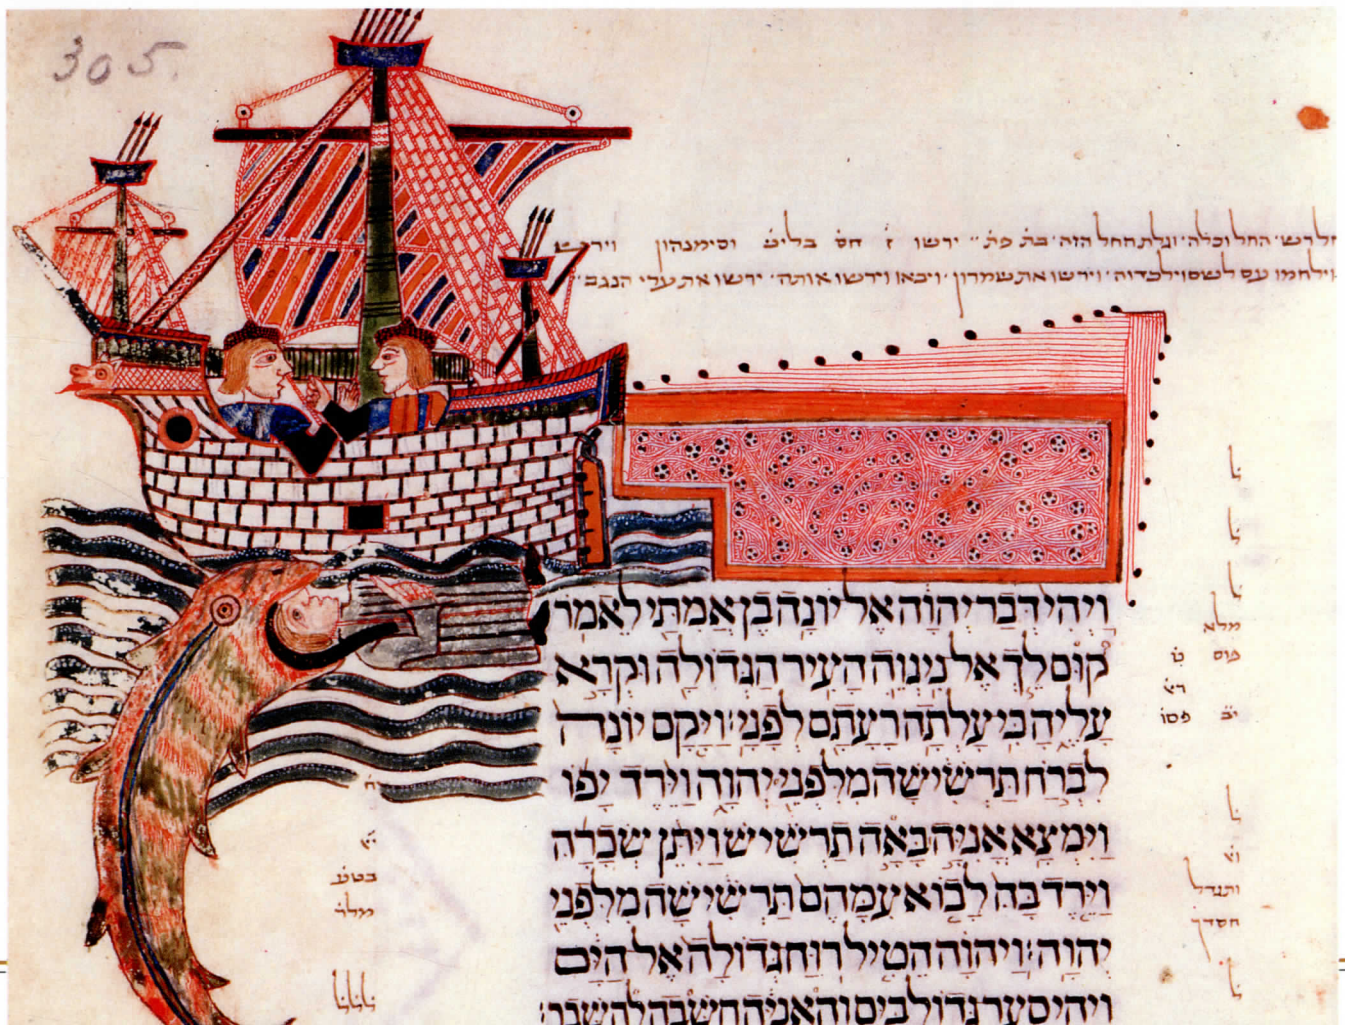 305.
החל וכלה ירשו ז חס בליש וסימנהון וירשו
וילחמו עם לשם וילכדוה וירשו את שמרון ויבאו וירשו אותה ירשו את ערי הנגב
וַיְהִי דְּבַר יְהוָה אֶל יוֹנָה בֶן אֲמִתַּי לֵאמֹר
קוּם לֵךְ אֶל נִינְוֵה הָעִיר הַגְּדוֹלָה וּקְרָא
עָלֶיהָ כִּי עָלְתָה רָעָתָם לְפָנָי׃ וַיָּקָם יוֹנָה
לִבְרֹחַ תַּרְשִׁישָׁה מִלִּפְנֵי יְהוָה וַיֵּרֶד יָפוֹ
וַיִּמְצָא אֳנִיָּה בָּאָה תַרְשִׁישׁ וַיִּתֵּן שְׂכָרָהּ
וַיֵּרֶד בָּהּ לָבוֹא עִמָּהֶם תַּרְשִׁישָׁה מִלִּפְנֵי
יְהוָה׃ וַיהוָה הֵטִיל רוּחַ גְּדוֹלָה אֶל הַיָּם
וַיְהִי סַעַר גָּדוֹל בַּיָּם וְהָאֳנִיָּה חִשְּׁבָה לְהִשָּׁבֵר׃
מלא
ותגדל
חסדך
בטע
מלר